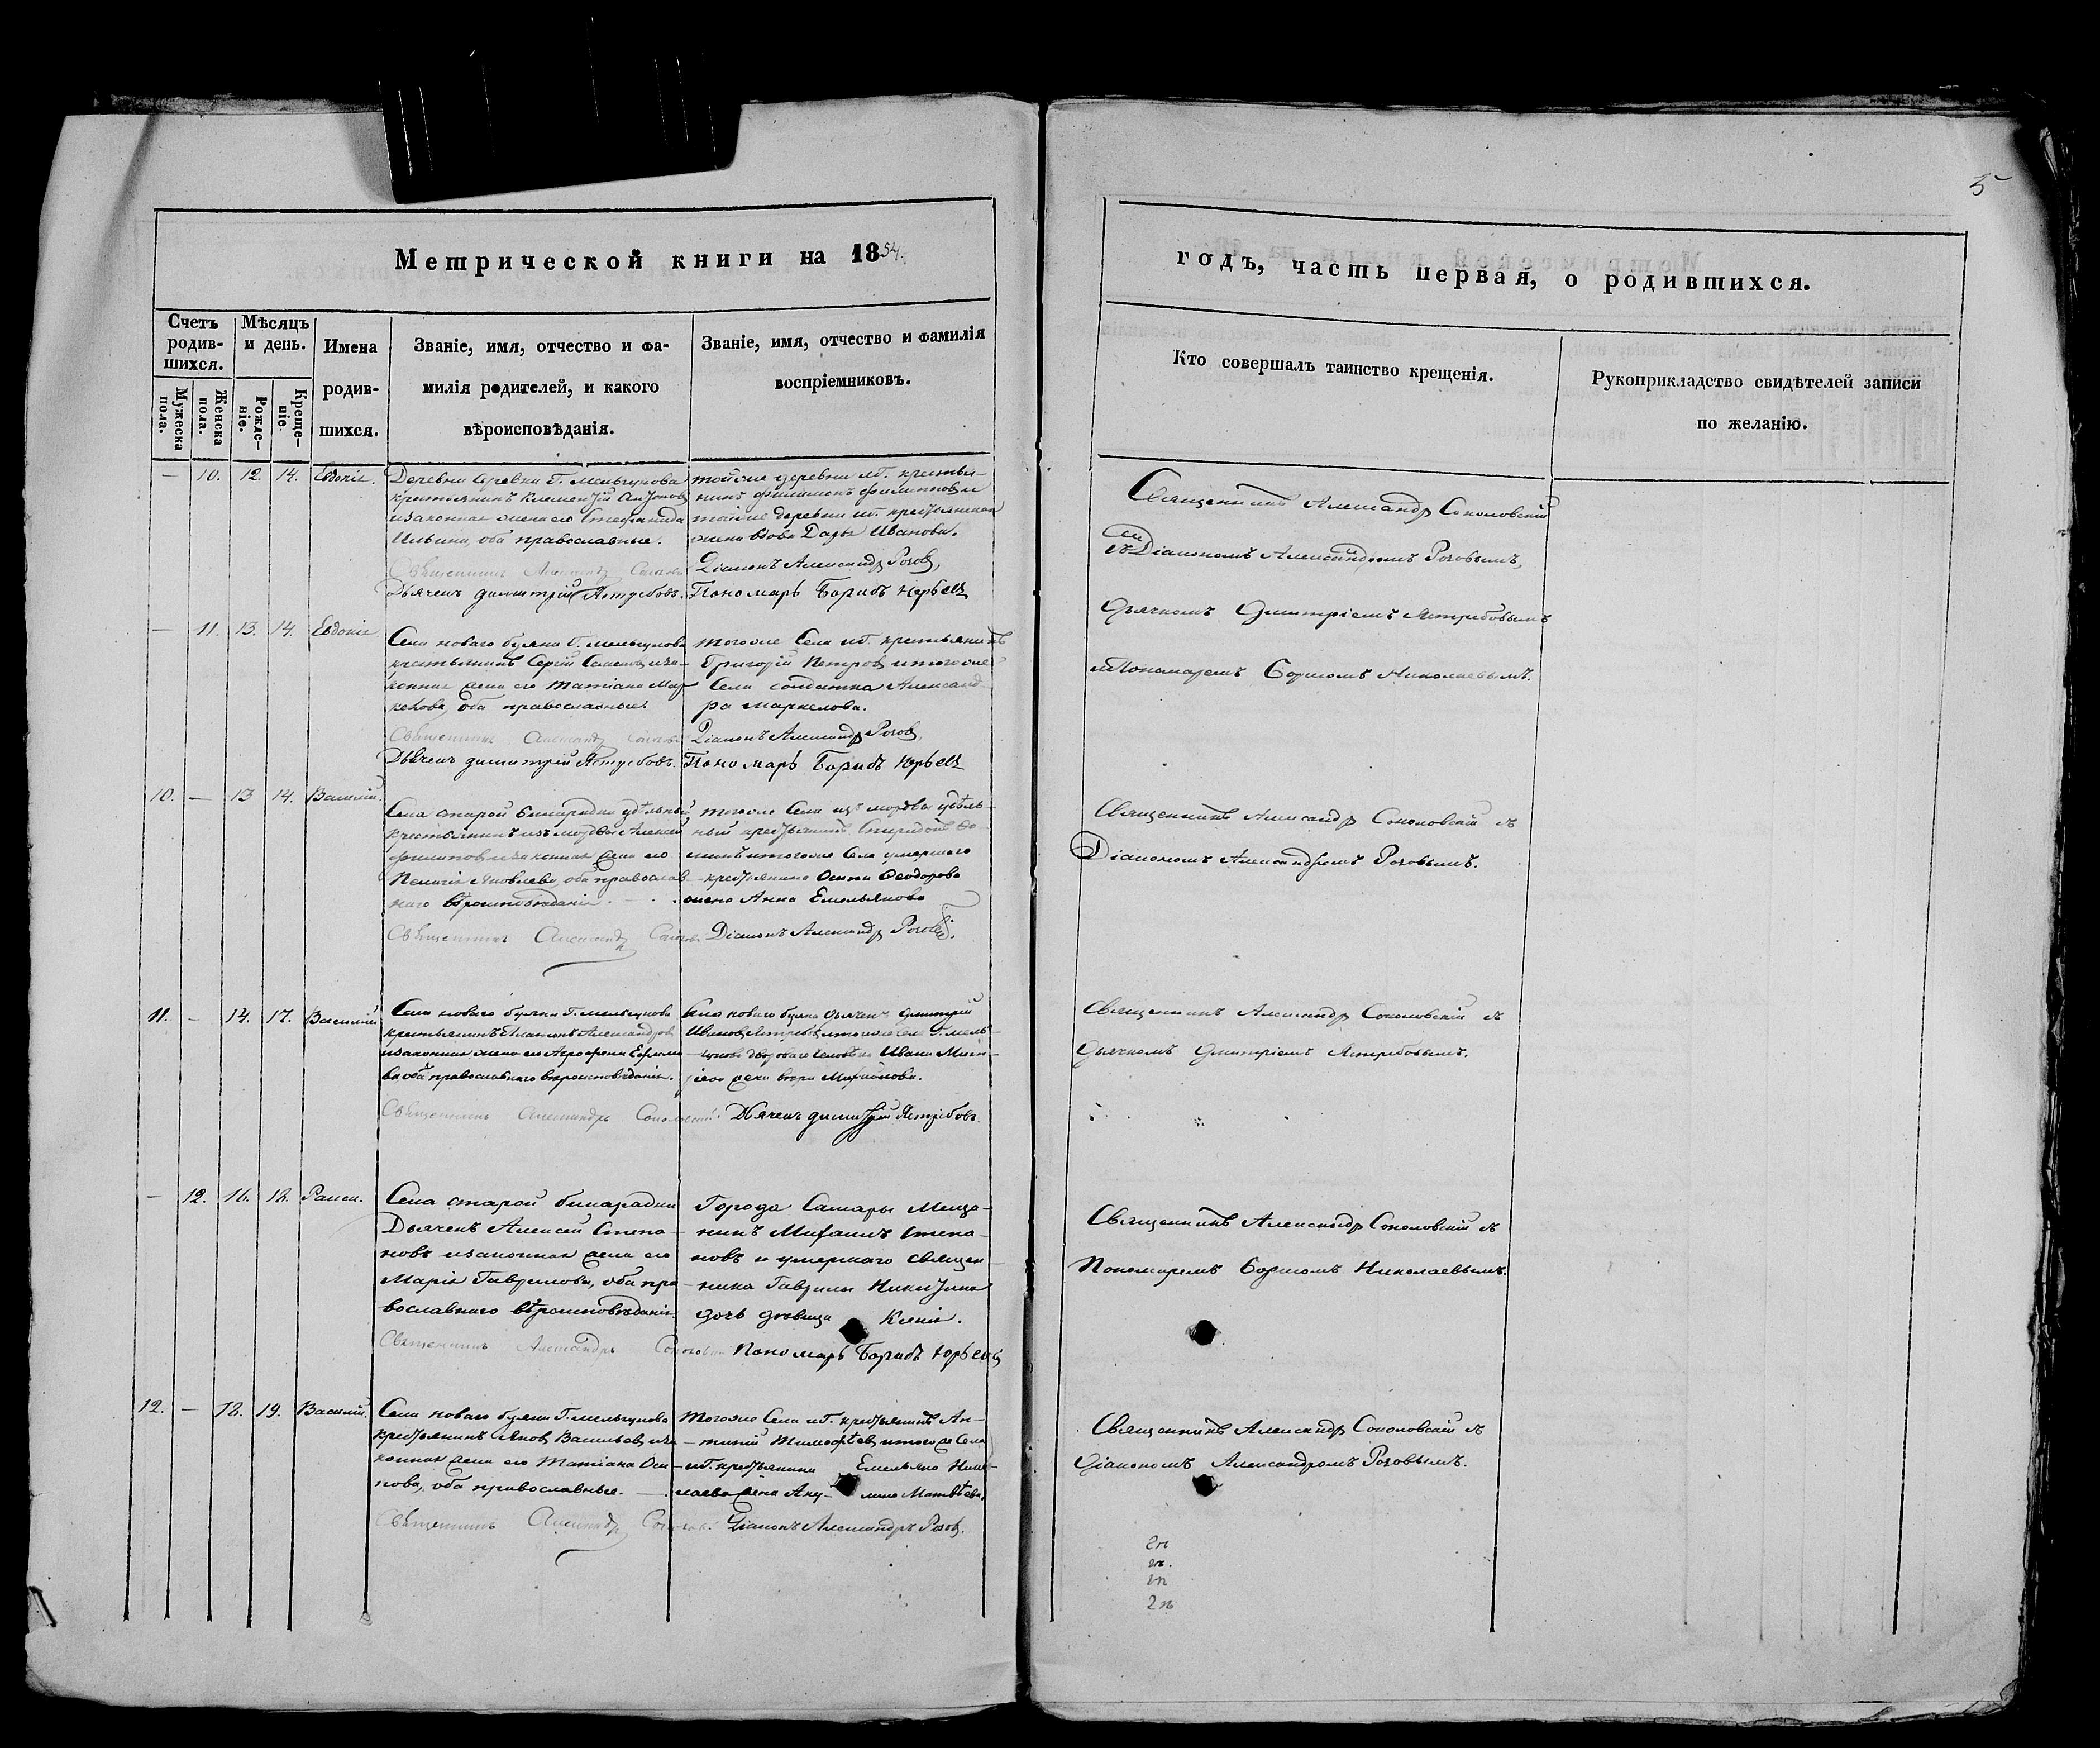 5
Метрической книги на 1854.
годъ, часть первая, о родившихся.
Счетъ родив-
шихся.
Мѣсяцъ
и день.
Мужеска
пола.
Женска
пола.
Рожде-
ніе.
Креще-
ніе.
Имена
родив-
шихся.
Званіе, имя, отчество и фа-
милія родителей, и какого
вѣроисповѣданія.
Званіе, имя, отчество и фамилія
воспріемниковъ.
Кто совершалъ таинство крещенія.
Рукоприкладство свидѣтелей записи
по желанію.
— 10. 12. 14. Евдокія.
Деревни Г. Мельгунова
крестьянинъ Климентій Антоновъ
и законная жена его Стефанида
Ильина, оба православные.
Священникъ Александръ
Дьячекъ Димитрій Ястребовъ.
тойже деревни крестья-
нинъ Филимонъ Филипповъ и
тойже деревни крестьянская
жена вдова Дарья Иванова.
Діаконъ Александр Розов,
Пономарь Борисъ Юрьевъ
Священникъ Александр Соколовскій
съ Діакономъ Александромъ Розовымъ,
Дьячкомъ Димитріемъ Ястребовымъ
и Пономаремъ Борисомъ Николаевымъ.
— 11. 13. 14. Евдокія
Села Новаго Буяна Г. Мельгунова
крестьянинъ Сергій Семеновъ и за-
конная жена его Татіана Мар-
келова, оба православные.
Священникъ Александр
Дьячекъ Димитрій Ястребовъ.
Тогоже Села крестьянинъ
Григорій Петровъ и тогоже
Села солдатка Александ-
ра Маркелова.
Діаконъ Александр Розов,
Пономарь Борисъ Юрьевъ
10. — 13 14. Василій.
Села Старой Бинарадки удѣльный
крестьянинъ изъ мордвы Алексей
Филиповъ и законная жена его
Пелагія Яковлева, оба православ-
наго вѣроисповѣданія.
Священникъ Александр
тогоже Села изъ мордвы удѣль-
ный крестьянинъ Спиридонъ Ѳо-
минъ и тогоже Села умершаго
крестьянина Осипа Ѳеодорова
жена Анна Емельянова
Діаконъ Александр Розов.
Священникъ Александр Соколовскій съ
Діакономъ Александромъ Розовымъ.
11. — 14. 17. Василій
Села Новаго Буяна Г. Мельгунова
крестьянинъ Платонъ Александровъ
и законная жена его Агрофена Ефимо-
ва оба православнаго вѣроисповѣданія.
Священникъ Александръ
Села Новаго Буяна дьячекъ Димитрій
Ивановъ Ястребовъ и тогоже села Г. Мель-
гунова двороваго человѣка Ивана
жена Вѣра
Дьячекъ Димитрій Ястребовъ.
Священникъ Александр Соколовскій съ
Дьячкомъ Димитріемъ Ястребовымъ.
— 12. 16. 18. Раиса.
Села Старой Бинарадки
Дьячекъ Алексей Степа-
новъ и законная жена его
Марія Гаврилова, оба пра-
вославнаго вѣроисповѣданія.
Священникъ Александръ
Города Самары Меща-
нинъ Михаилъ Степа-
новъ и умершаго священ-
ника Гаврилы Никитина
дочь девица Ксенія.
Пономарь Борисъ Юрьевъ
Священникъ Александр Соколовскій съ
Пономаремъ Борисомъ Николаевымъ.
12. — 18. 19. Василій.
Села Новаго Буяна Г. Мельгунова
крестьянинъ Яковъ Васильевъ и за-
конная жена его Татіана Оси-
пова, оба православные.
Священникъ Александр
Тогоже Села крестьянинъ Ан-
типій Тимофѣевъ и тогоже Села
крестьянина Емельяна Нико-
лаева жена Аку- лина Матвѣева.
Діаконъ Александръ Розов.
Священникъ Александр Соколовскій съ
Діакономъ Александромъ Розовымъ.